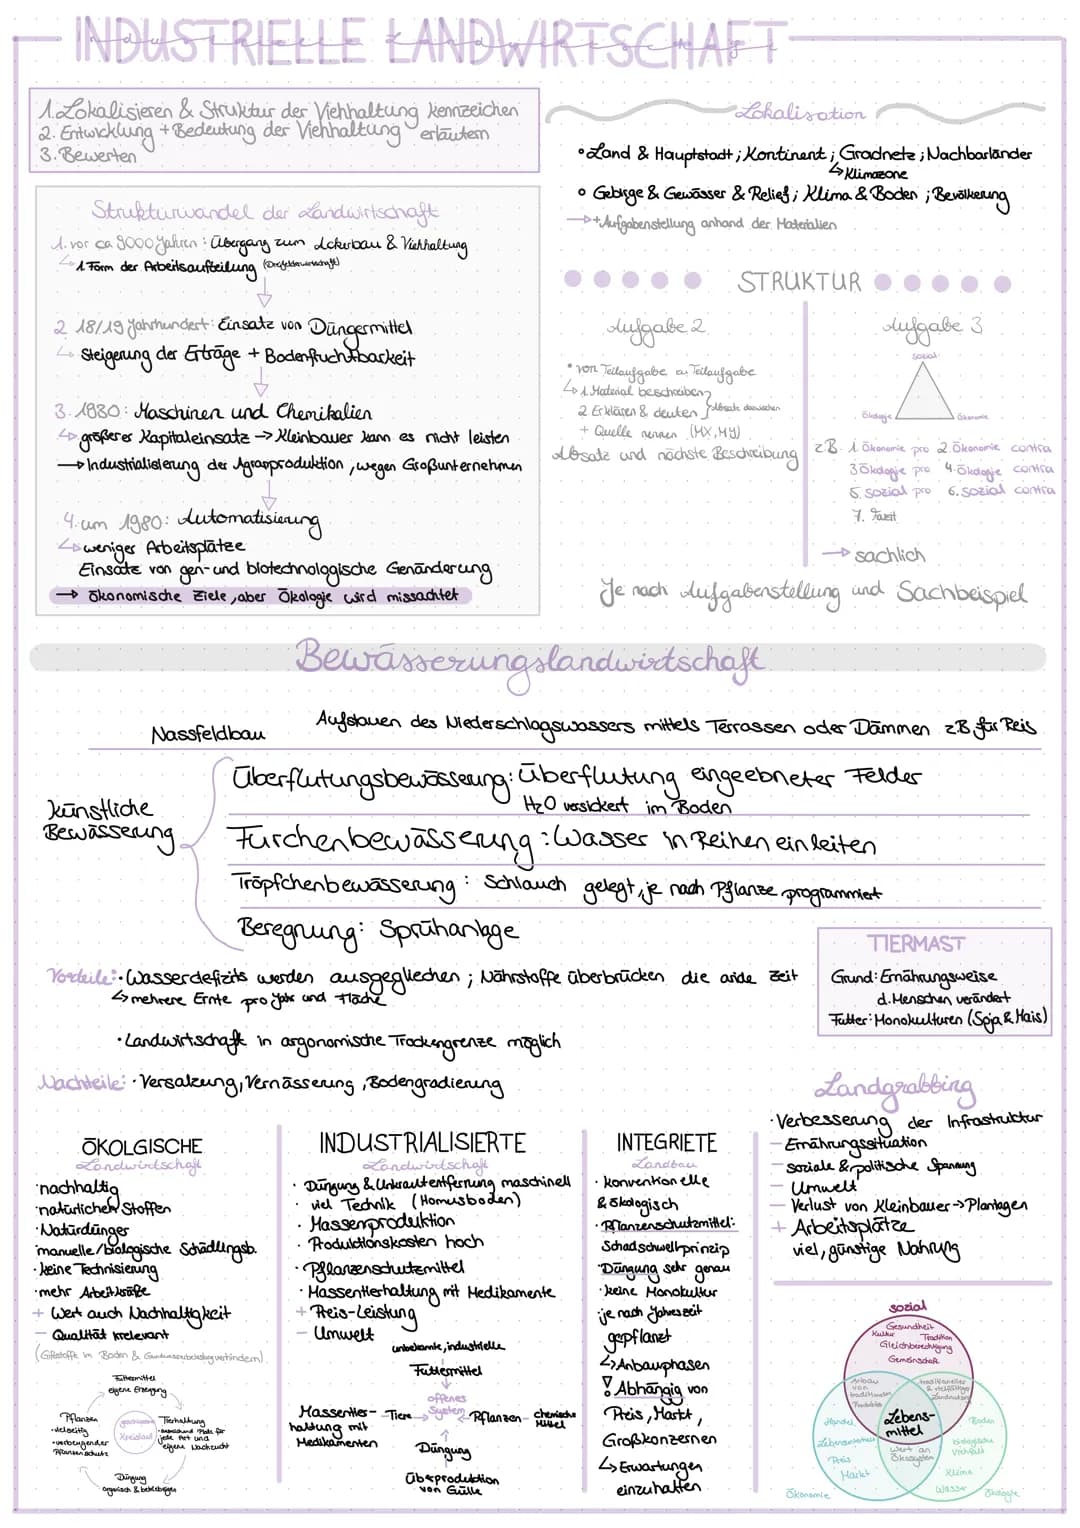 INDUSTRIELLE LANDWIRTSCHAFT
1. Lokalisieren & Struktur der Viehhaltung kennzeichen
2. Entwicklung + Bedeutung der Viehhaltung erläutern
3. Bewerten
Strukturwandel der Landwirtschaft
1. vor ca 9000 Jahren: Übergang zum Ackerbau & Viehhaltung
↳ 1 Form der Arbeitsaufteilung (Dreifelderwirtschaft)
2. 18/19 Jahrhundert: Einsatz von Düngermittel
↳ Steigerung der Erträge + Bodenfruchtbarkeit
3. 1930: Maschinen und Chemikalien
↳ größerer Kapitaleinsatz → Kleinbauer kann es nicht leisten
→ Industrialisierung der Agrarproduktion, wegen Großunternehmen
4. um 1980: Automatisierung
↳ weniger Arbeitsplätze
Einsatz von gen- und biotechnologische Genänderung
→ Ökonomische Ziele, aber Ökologie wird missachtet
Lokalisation
• Land & Hauptstadt; Kontinent; Gradnetz; Nachbarländer
↳ Klimazone
• Gebirge & Gewässer & Relief; Klima & Boden; Bevölkerung
→ + Aufgabenstellung anhand der Materialien
STRUKTUR
Aufgabe 2
• von Teilaufgabe zu Teilaufgabe
↳ 1. Material beschreiben
2 Erklären & deuten } Absatz dazwischen
+ Quelle nennen (MX, MY)
Absatz und nächste Beschreibung
Aufgabe 3
sozial
Ökologie Ökonomie
z.B. 1. Ökonomie pro 2. Ökonomie contra
3 Ökologie pro 4. Ökologie contra
5. sozial pro 6. sozial contra
7. Fazit
→ sachlich
Je nach Aufgabenstellung und Sachbeispiel
Bewässerungslandwirtschaft
Nassfeldbau Aufstauen des Niederschlagswassers mittels Terrassen oder Dämmen z.B für Reis
künstliche
Bewässerung
Überflutungsbewässerung: Überflutung eingeebneter Felder
H2O versickert im Boden
Furchenbewässerung: Wasser in Reihen einleiten
Tröpfchenbewässerung: Schlauch gelegt, je nach Pflanze programmiert
Beregnung: Sprühanlage
Vorteile: • Wasserdefizits werden ausgegliechen; Nährstoffe überbrücken die aride Zeit
↳ mehrere Ernte pro Jahr und Fläche
• Landwirtschaft in argonomische Trockengrenze möglich
Nachteile: • Versalzung, Vernässerung, Bodengradierung
TIERMAST
Grund: Ernährungsweise
d. Menschen verändert
Futter: Monokulturen (Soja & Mais)
Landgrabbing
• Verbesserung der Infrastruktur
- Ernährungssituation
- soziale & politische Spannung
- Umwelt
- Verlust von Kleinbauer → Plantagen
+ Arbeitsplätze
viel, günstige Nahrung
ÖKOLGISCHE
Landwirtschaft
• nachhaltig
• natürlichen Stoffen
• Naturdünger
• manuelle/biologische Schädlingsb.
• keine Technisierung
• mehr Arbeitkräfte
+ Wert auch Nachhaltigkeit
- Qualität irrelevant
(Giftstoffe im Boden & Grundwasserbelastung verhindern)
Futtermittel
eigene Erzegung
Pflanzen
• vielseitig
• vorbeugender
Pflanzenschutz
geschlossener
Kreislauf
Tierhaltung
• ausreichend Platz für
jede Art und
eigene Nachzucht
Düngung
organisch & betriebseigen
INDUSTRIALISIERTE
Landwirtschaft
• Düngung & Unkrautentfernung maschinell
• viel Technik (Homusboden)
• Massenproduktion
• Produktionskosten hoch
• Pflanzenschutzmittel
• Massentierhaltung mit Medikamente
+ Preis-Leistung
- Umwelt
unbekannte, industrielle
Futtermittel
offenes
System
Massentier-
haltung mit
Medikamenten
Tiere
Pflanzen
chemische
Mittel
Düngung
Überproduktion
von Gülle
INTEGRIETE
Landbau
• konventionelle
& ökologisch
• Pflanzenschutzmittel:
Schadschwellprinzip
• Düngung sehr genau
• keine Monokultur
• je nach Jahreszeit
gepflanzt
↳ Anbauphasen
! Abhängig von
Preis, Markt,
Großkonzernen
↳ Erwartungen
einzuhalten
sozial
Gesundheit
Kultur Tradition
Gleichberechtigung
Gemeinschaft
Anbau
von
traditionellen
Produkten
traditioneller
& vielfältiger
Landnutzung
Lebens-
mittel
Wert an
Ökosystem
Handel
Lebensunterhalt
Preis
Markt
Ökonomie
Boden
biologische
Vielfalt
Klima
Wasser
Ökologie